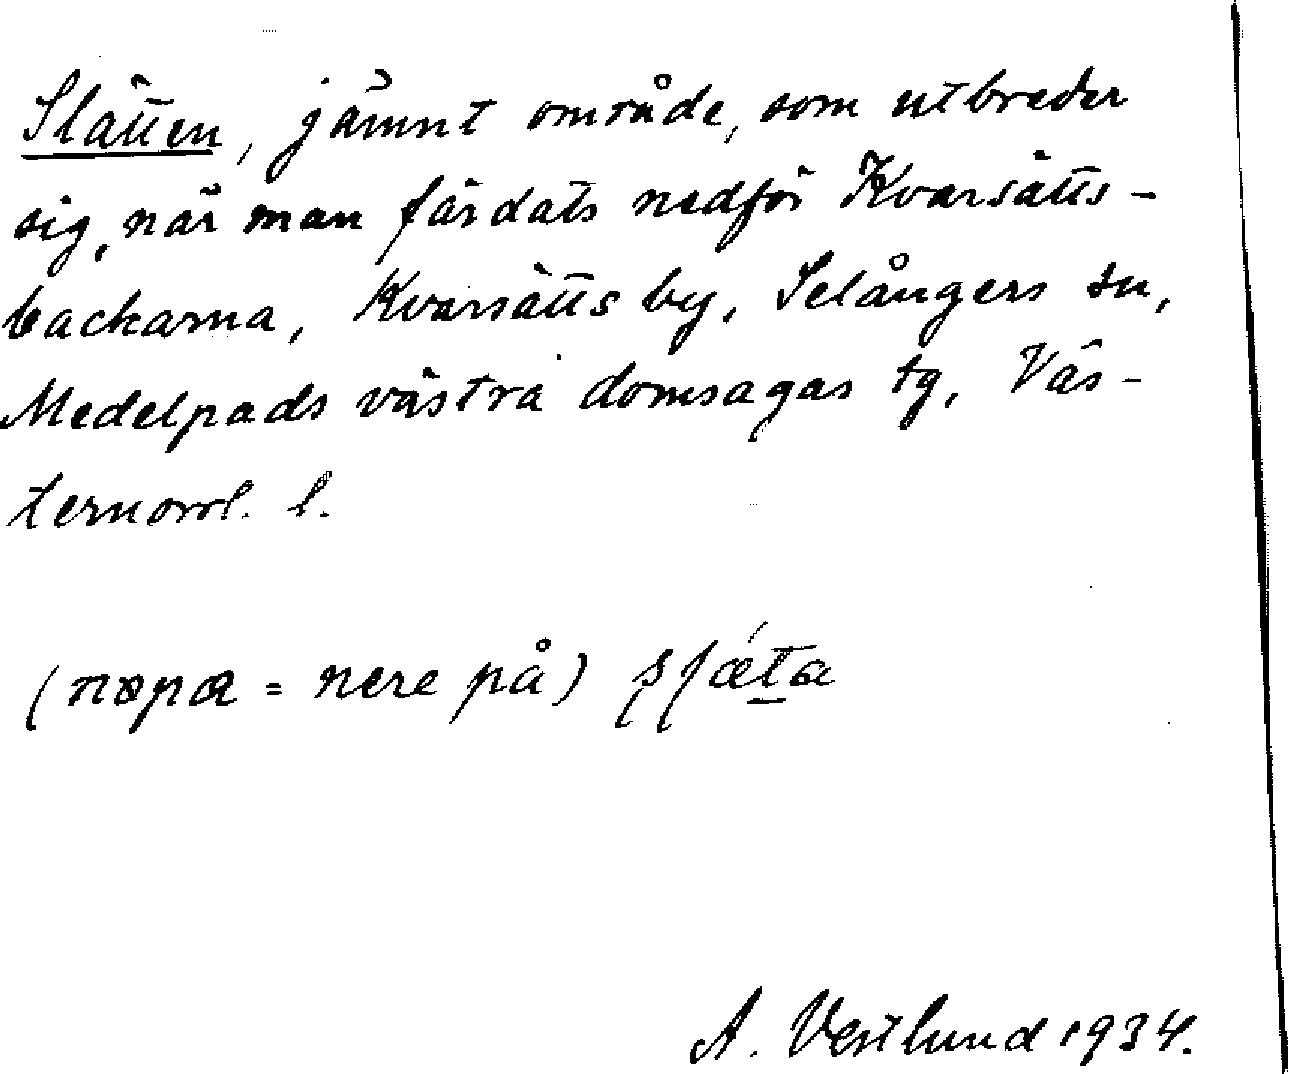 Slätten, jämnt område, som utbreder
sig, när man färdats nedför Kvarsätts-
backarna, Kvarsätts by, Selångers sn,
Medelpads västra domsagas tg, Väs-
ternorrl. l.
( = nere på)
A. Vestlund 1934.